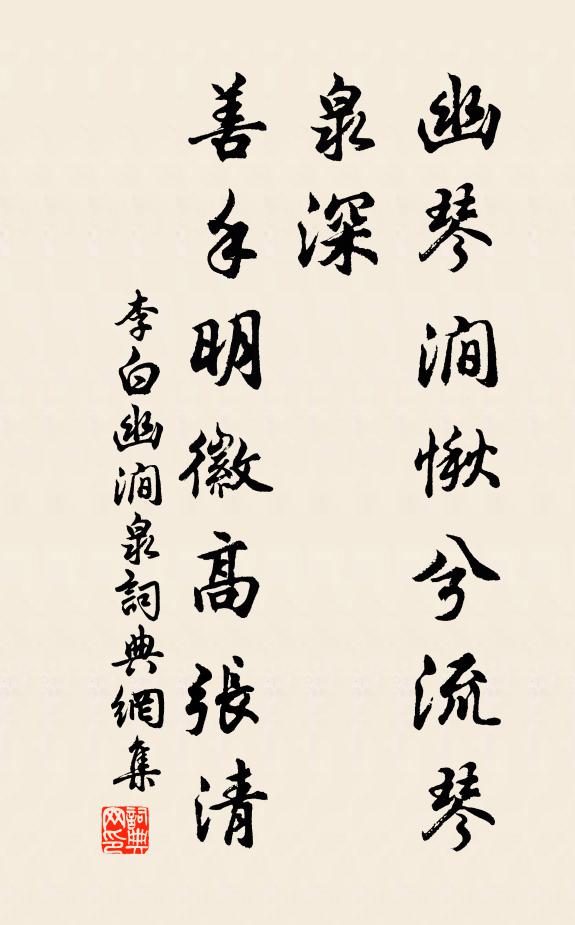 幽琴澗愀兮流琴
泉深
善手明徽高張清
李白幽澗泉詞典網集
詞典
网印